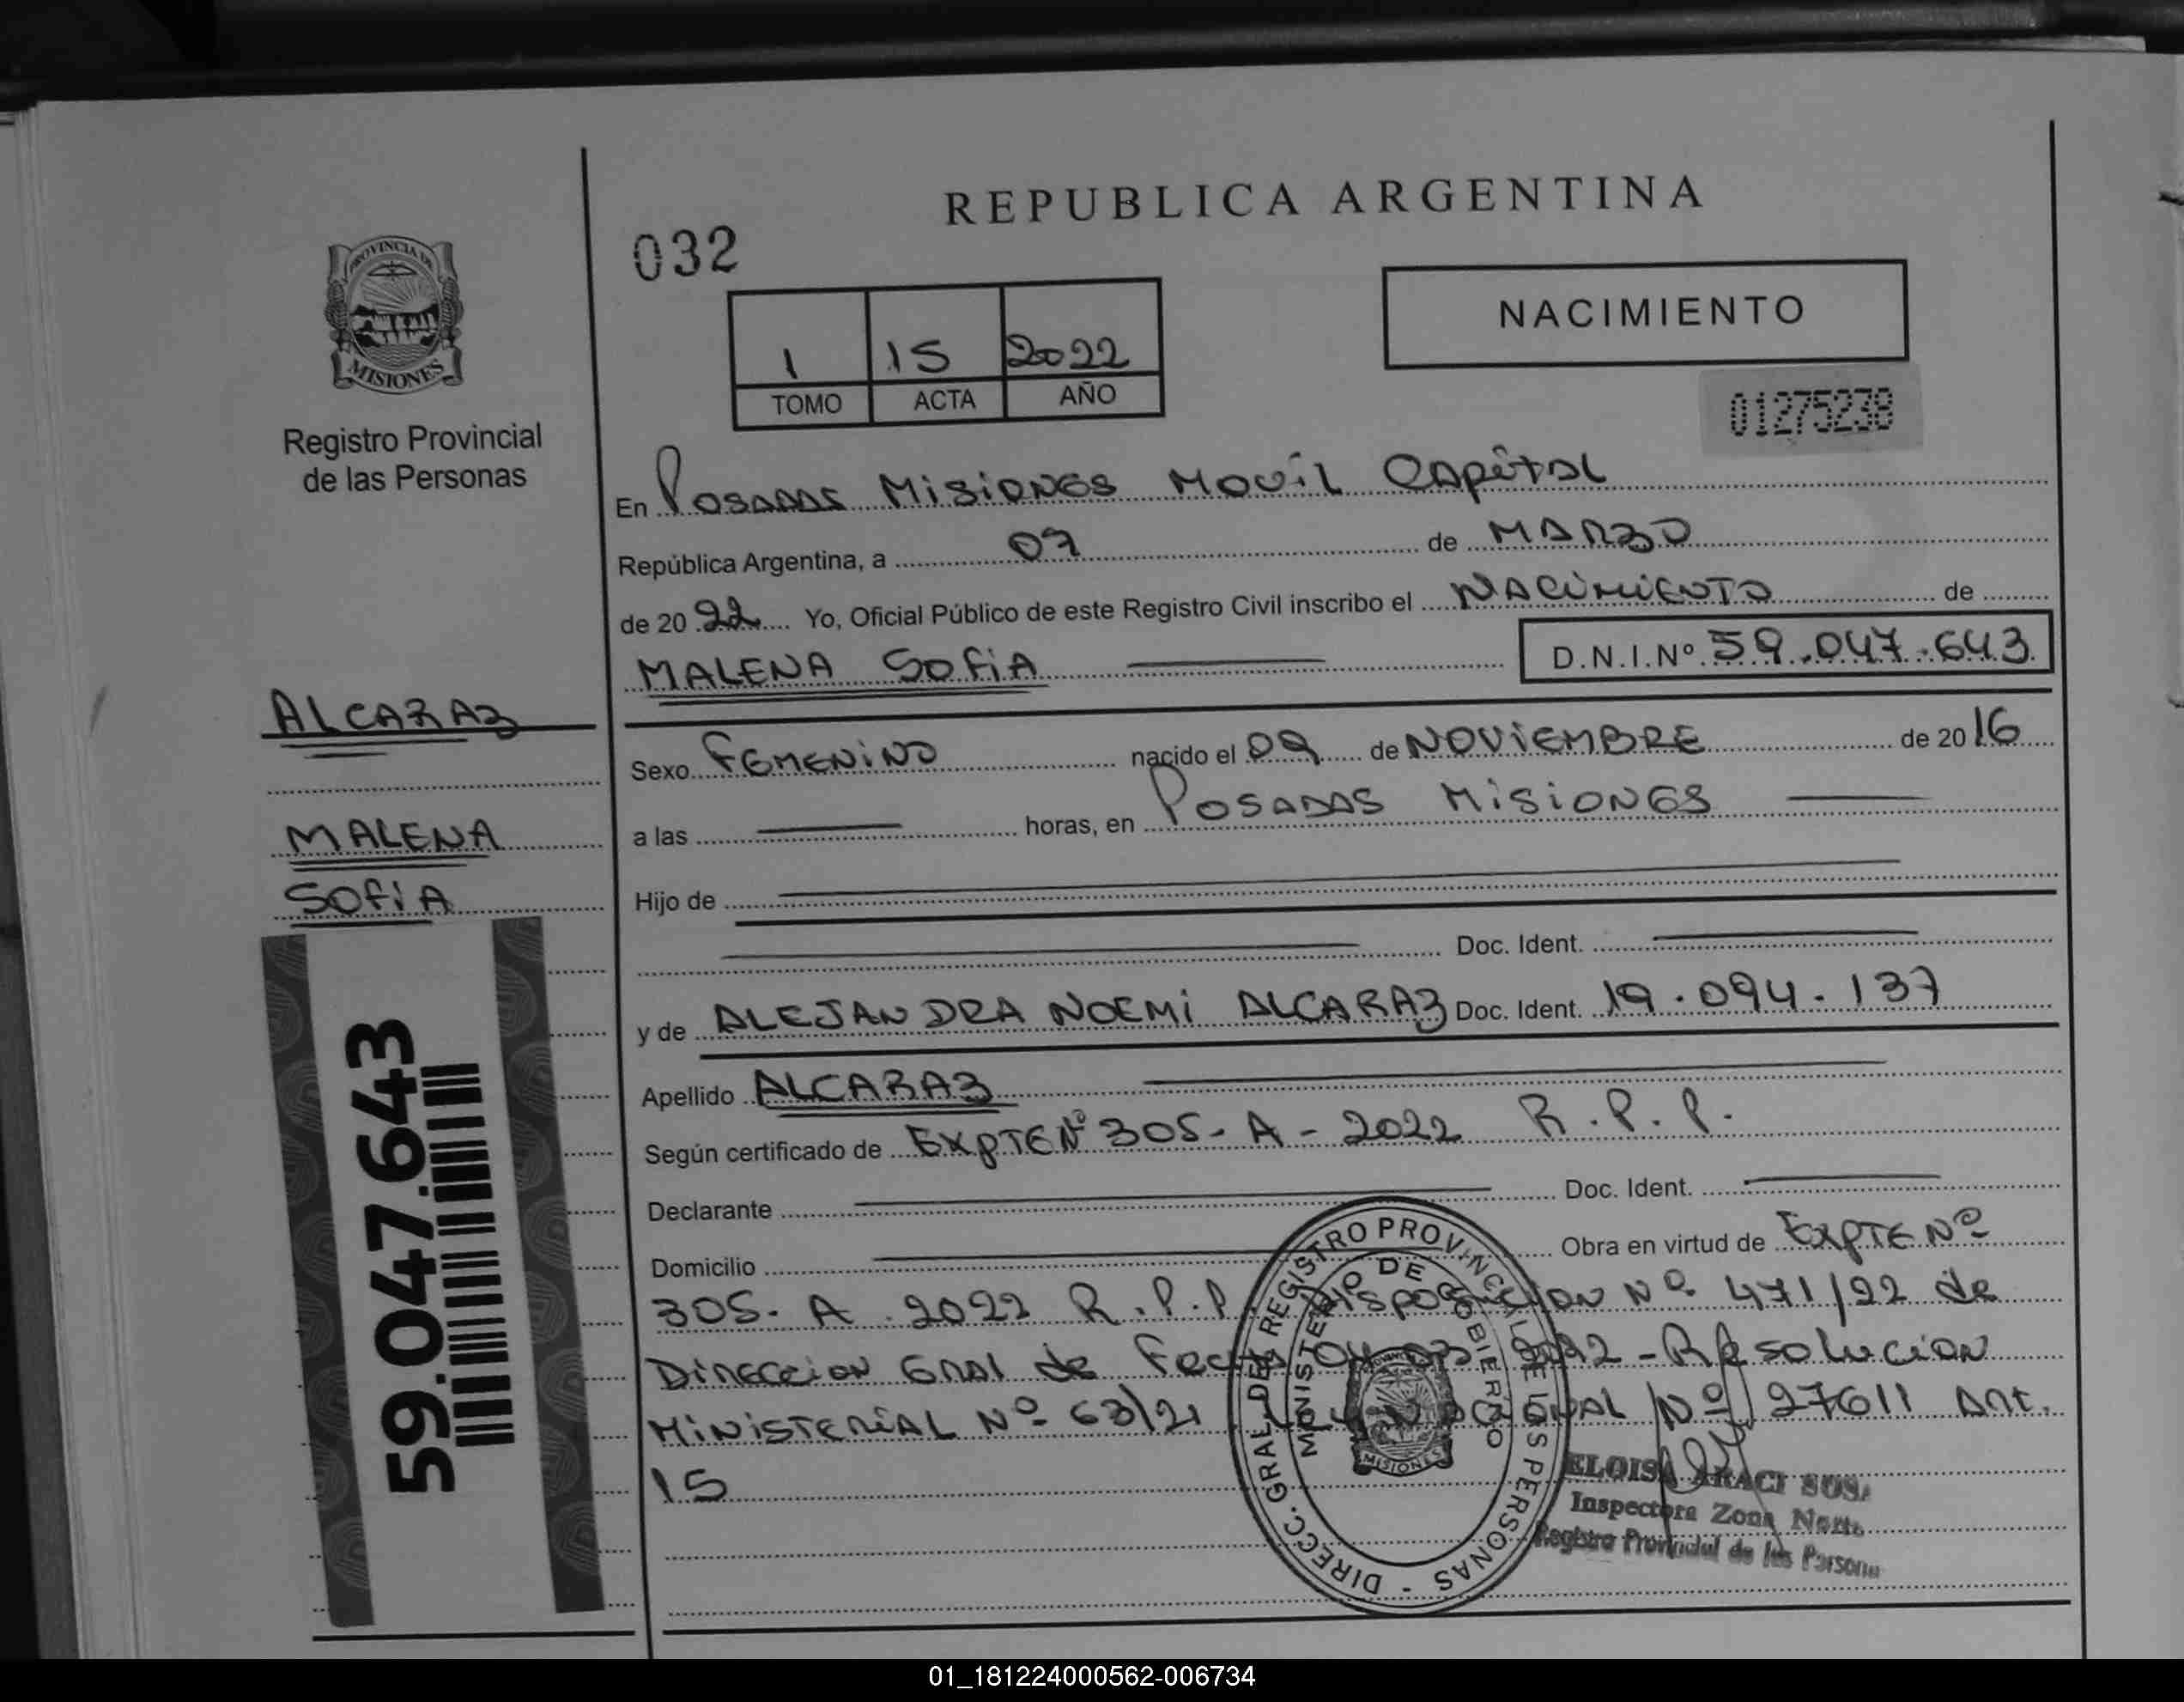 REPUBLICA ARGENTINA
032
NACIMIENTO
PROVINCIA DE
MISIONES
Registro Provincial
de las Personas
1 15 2022
TOMO ACTA AÑO
01275238
En POSADAS MISIONES MOVIL CAPITAL
República Argentina, a 07 de MARZO
de 2022 Yo, Oficial Público de este Registro Civil inscribo el NACIMIENTO de
MALENA SOFIA D.N.I.Nº 59.047.643
ALCARAZ
MALENA
SOFIA
59.047.643
Sexo FEMENINO nacido el 09 de NOVIEMBRE de 2016
a las horas, en POSADAS MISIONES
Hijo de
Doc. Ident.
y de ALEJANDRA NOEMI ALCARAZ Doc. Ident. 19.094.137
Apellido ALCARAZ
Según certificado de EXPTE Nº 305-A-2022 R.P.P.
Declarante Doc. Ident.
Domicilio Obra en virtud de EXPTE Nº
305-A.2022 R.P.P. DISPOSICION Nº 471/22 de
DIRECCION GRAL de Fecha 04 03 2022-RESOLUCION
MINISTERIAL Nº 63/21 LEY NACIONAL Nº 27611 ART.
15
DIRECC. GRAL DEL REGISTRO PROVINCIAL DE LAS PERSONAS -
MINISTERIO DE GOBIERNO
MISIONES
ELOISA ARACI SOSA
Inspectora Zona Norte
Registro Provincial de las Persona
01_181224000562-006734